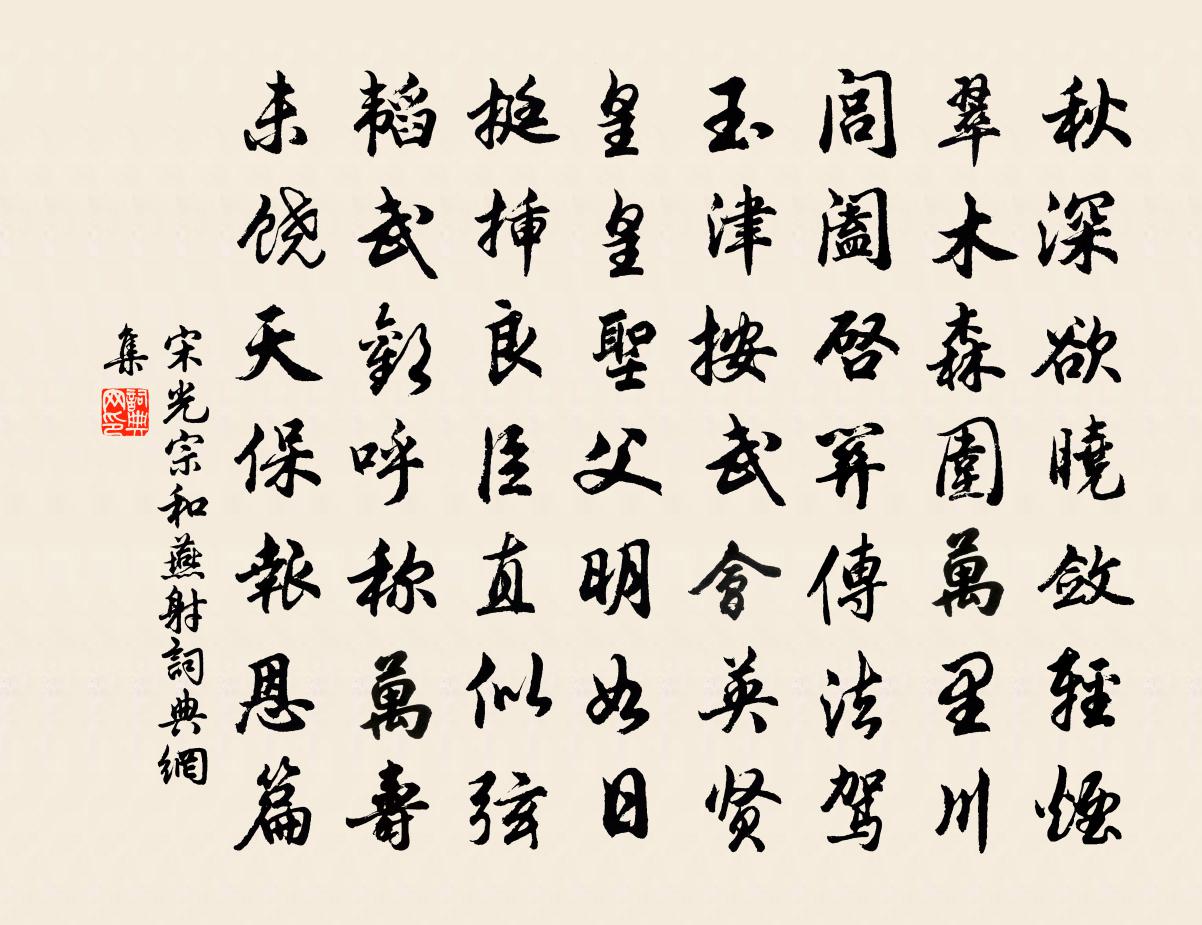 秋深欲曉斂輕煙
翠木森圍萬里川
閶闔啓開傳法駕
玉津按武會英贤
皇皇聖父明如日
挺插良臣直似弦
韜武歡呼称萬壽
未饶天保報恩篇
宋光宗和燕射詞典網
集
詞典网印